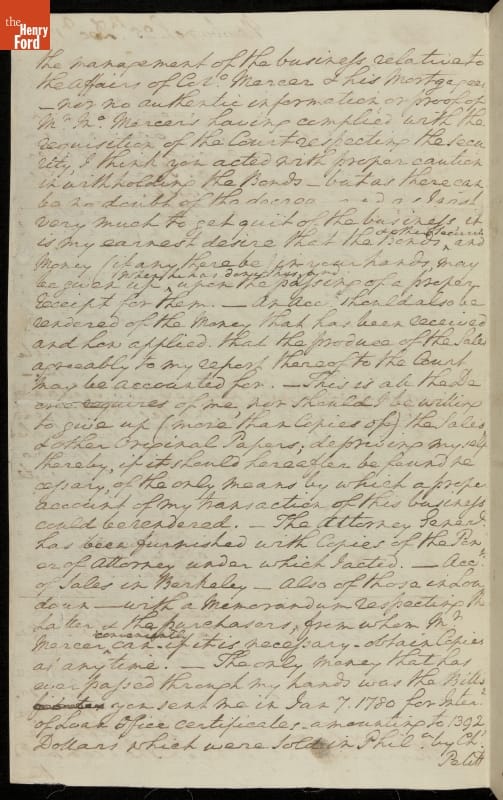 the Henry Ford
the management of the business relative to
the affairs of Colo. Mercer & his Mortgagees
– nor no authentic information or proof of
Mr. Jno. Mercer's having complied with the
requisition of the Court respecting the Secu
rity, I think you acted with proper caution
in withholding the Bonds – but as there can
be no doubt of the decree and as I wish
very much to get quit of the business it
is my earnest desire that the Bonds, and
& other securities
Money (if any there be) in your hands, may
when he has done this, and
be given up, upon the passing of a proper
receipt for them. – An Acct. should also be
rendered of the Money that has been received
and how applied. that the produce of the Sales
agreeably to my report thereof to the Court
may be accounted for. – This is all the De
cree requires of me, nor should I be willing
to give up (more than Copies of) the Sales
& other Original Papers; depriving myself
thereby, if it should hereafter be found ne
cessary, of the only means by which a proper
account of my transaction of this business
could be rendered. – The Attorney General
has been furnished with Copies of the Pow
er of Attorney under which I acted. – Acct.
of Sales in Berkeley – Also of those in Lou
doun – with a Memorandum respecting the
latter & the purchasers, from whom Mr.
conveniently
Mercer can – if it is necessary – obtain Copies
at any time. – The only money that has
ever passed through my hands was the Bills
you sent me in Jan 7. 1780 for Inter.
of Loan Office certificates amounting to 1392
Dollars which were sold in Phila. by Chs.
Petitt